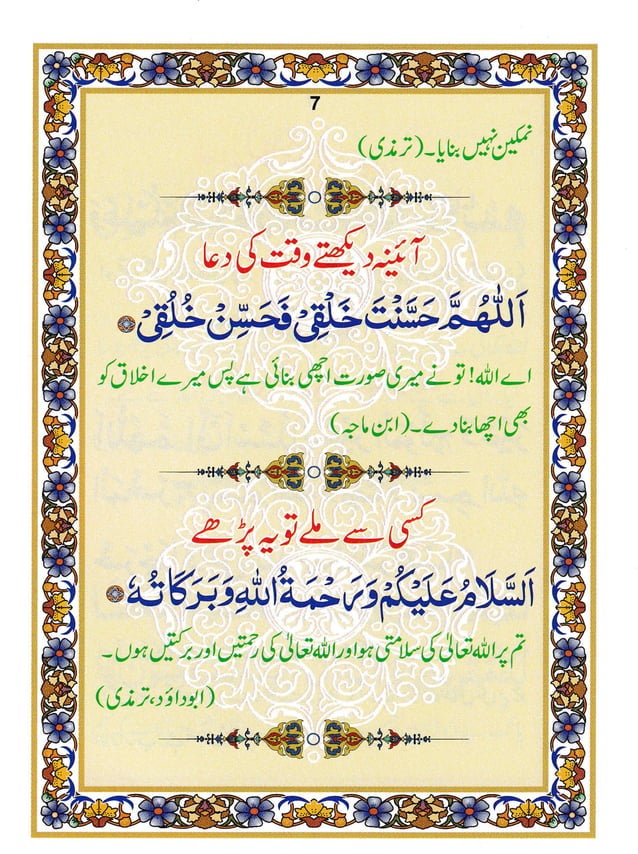 7
نمکین نہیں بنایا۔ (ترمذی)
آئینہ دیکھتے وقت کی دعا
اَللّٰهُمَّ حَسَّنْتَ خَلْقِيْ فَحَسِّنْ خُلُقِيْ
اے اللہ! تو نے میری صورت اچھی بنائی ہے پس میرے اخلاق کو
بھی اچھا بنا دے۔ (ابن ماجہ)
کسی سے ملے تو یہ پڑھے
اَلسَّلَامُ عَلَيْكُمْ وَرَحْمَةُ اللهِ وَبَرَكَاتُهٗ
تم پر اللہ تعالیٰ کی سلامتی ہو اور اللہ تعالیٰ کی رحمتیں اور برکتیں ہوں۔
(ابوداؤد، ترمذی)